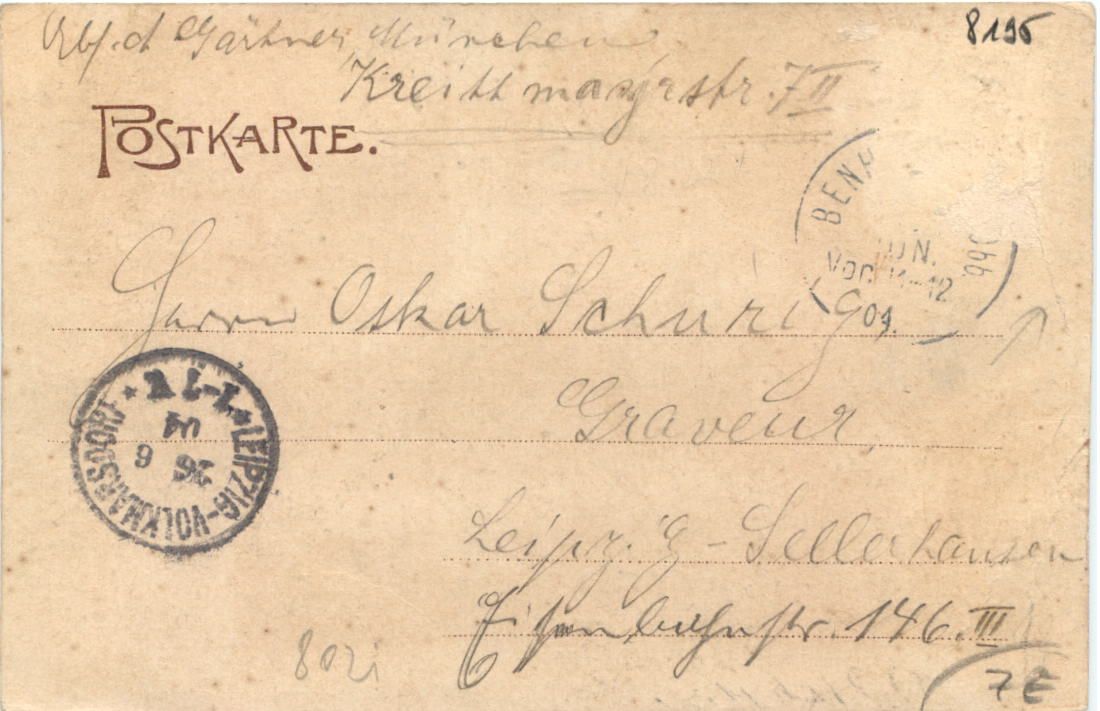 8195
Abs. A Gärtner, München
Kreittmayrstr. 7 II
POSTKARTE.
BENA
JUN.
Vor. 11-12
04.
Herrn Oskar Schurig
Graveur
Leipzig-Sellerhausen
Eisenbahnstr. 146. III
LEIPZIG-VOLKMARSDORF
26 6
04
802i
7E